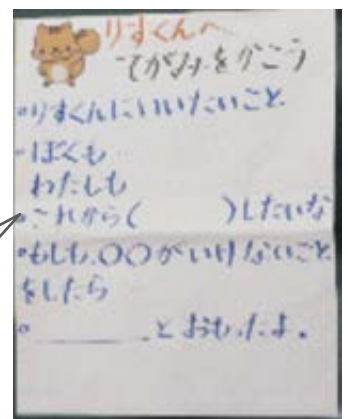 りすくんへ
てがみをかこう
•りすくんにいいたいこと
•ぼくも
わたしも
•これから(　　　)したいな
•もしも、〇〇がいけないこと
をしたら
•＿＿＿＿＿とおもったよ。